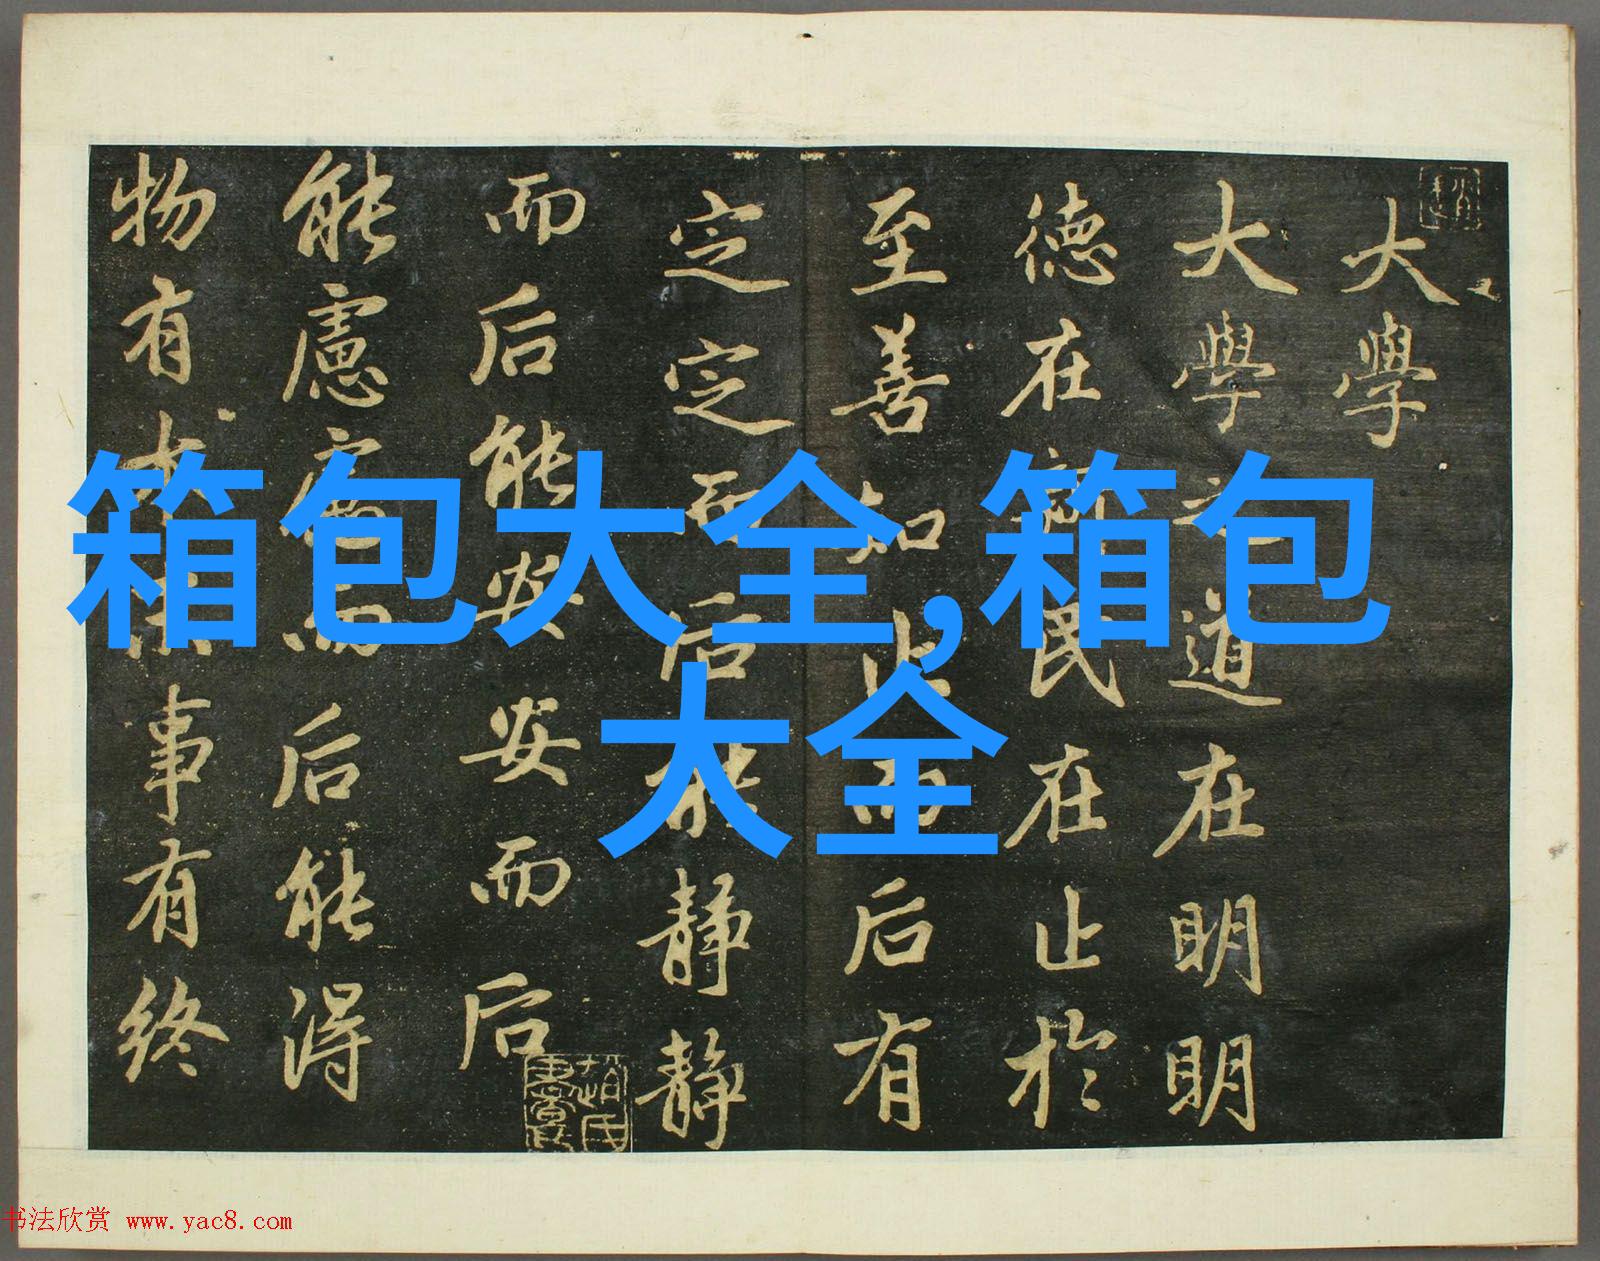 大學
大學之道在明明
德在新民在止於
至善知止而后有
定定而后能静静
而后能安安而后
能慮慮而后能得
物有本末事有終
箱包大全,箱包
大全
书法欣赏 www.yac8.com